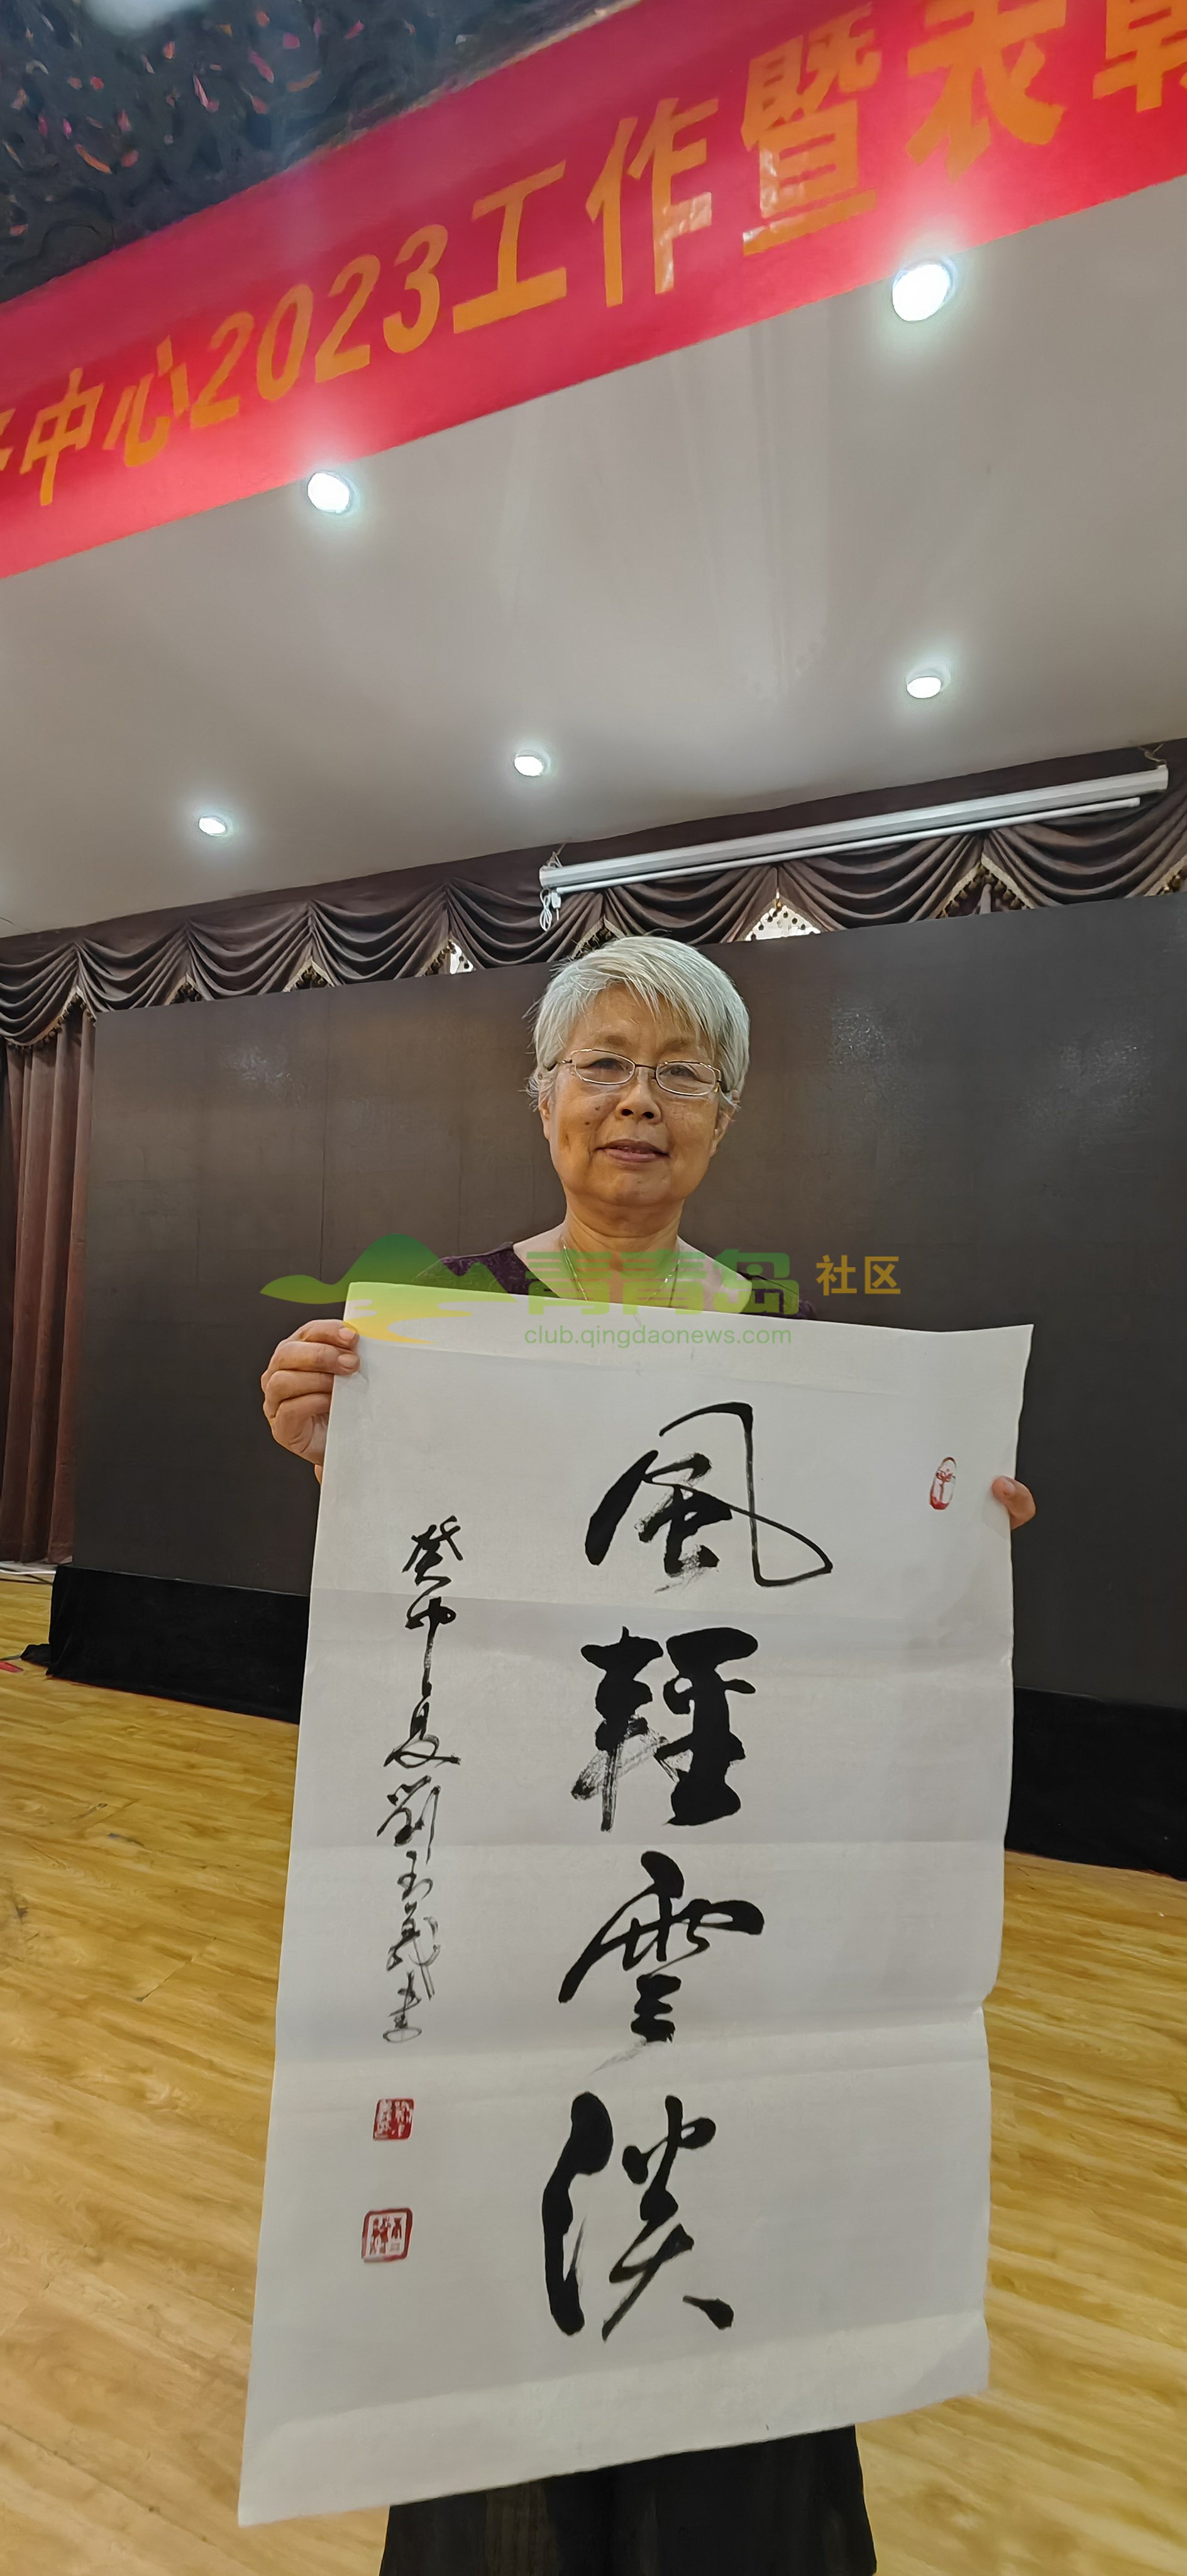 中心2023工作暨表
青青岛 社区
club.qingdaonews.com
風輕雲淡
癸卯夏劉玉義書